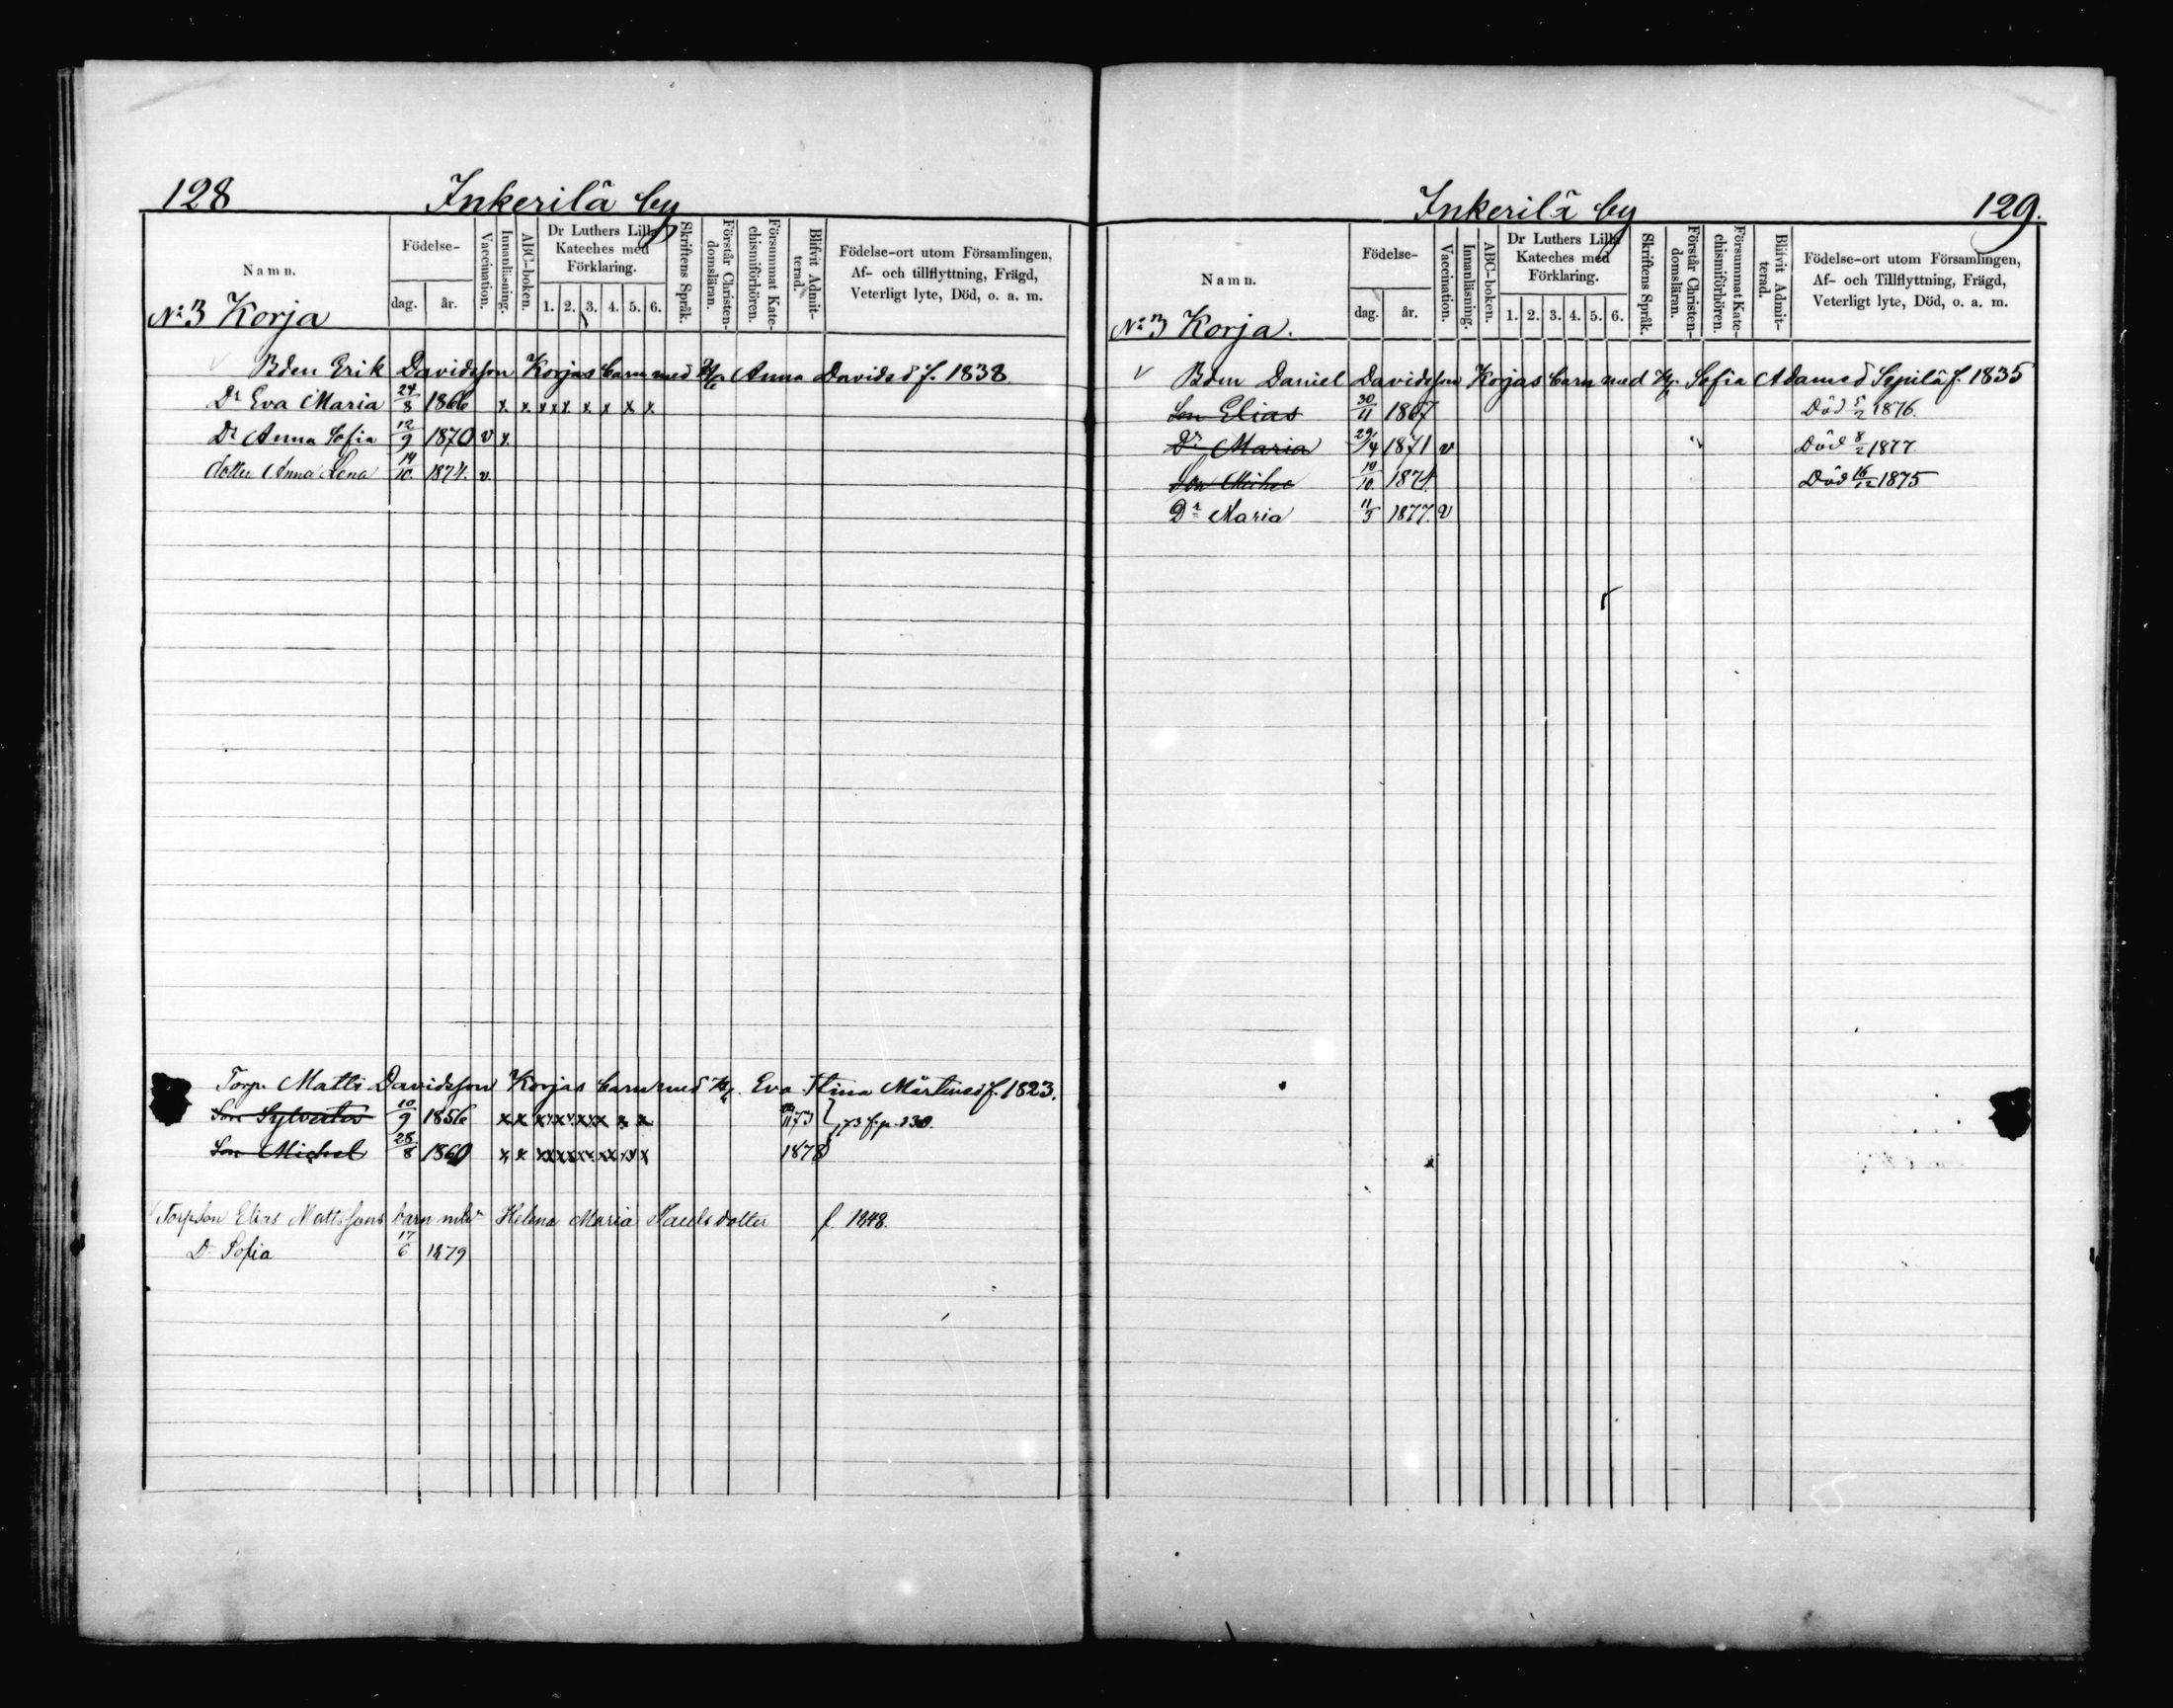 128 Inkerilä by
Namn. Födelse- Vaccination. Innanläsning. ABC-boken. Dr Luthers Lilla Kateches med Förklaring. Skriftens Språk. Förstår Christendomsläran. Försummat Katechismiförhören. Blifvit Admitterad. Födelse-ort utom Församlingen, Af- och tillflyttning, Frägd, Veterligt lyte, Död, o. a. m.
dag. år. 1. 2. 3. 4. 5. 6.
No 3 Korja
Bden Erik Davidsson Korjas barn med Anna Davidsd f. 1838
Dr Eva Maria 24/8 1866 x x x x x x x x x
Dr Anna Sofia 12/9 1870 v x
dotter Anna Lena 14/10 1874. v.
Torp. Matts Davidsson Korjas barn med Hu Eva Stina Mårtensd f. 1823.
Son Sylvester 10/9 1856 x x x x x x x x x 73 f. p. 230
Son Michel 28/8 1860 x x x x x x x x x x 1878
Torp.Son Elias Mattssons barn m hu Helena Maria Paulsdotter f. 1848.
Dr Sofia 17/6 1879
Inkerilä by 129.
Namn. Födelse- Vaccination. Innanläsning. ABC-boken. Dr Luthers Lilla Kateches med Förklaring. Skriftens Språk. Förstår Christendomsläran. Försummat Katechismiförhören. Blifvit Admitterad. Födelse-ort utom Församlingen, Af- och Tillflyttning, Frägd, Veterligt lyte, Död, o. a. m.
dag. år. 1. 2. 3. 4. 5. 6.
No 3 Korja.
v Bden Daniel Davidsson Korjas barn med Hu Sofia Adamsd Sepilä f. 1835
Son Elias 30/11 1867 Död 5/2 1876.
Dr Maria 29/4 1871 v Död 8/2 1877.
Son Michel 10/10 1874. Död 16/12 1875
Dr Maria 11/3 1877. v